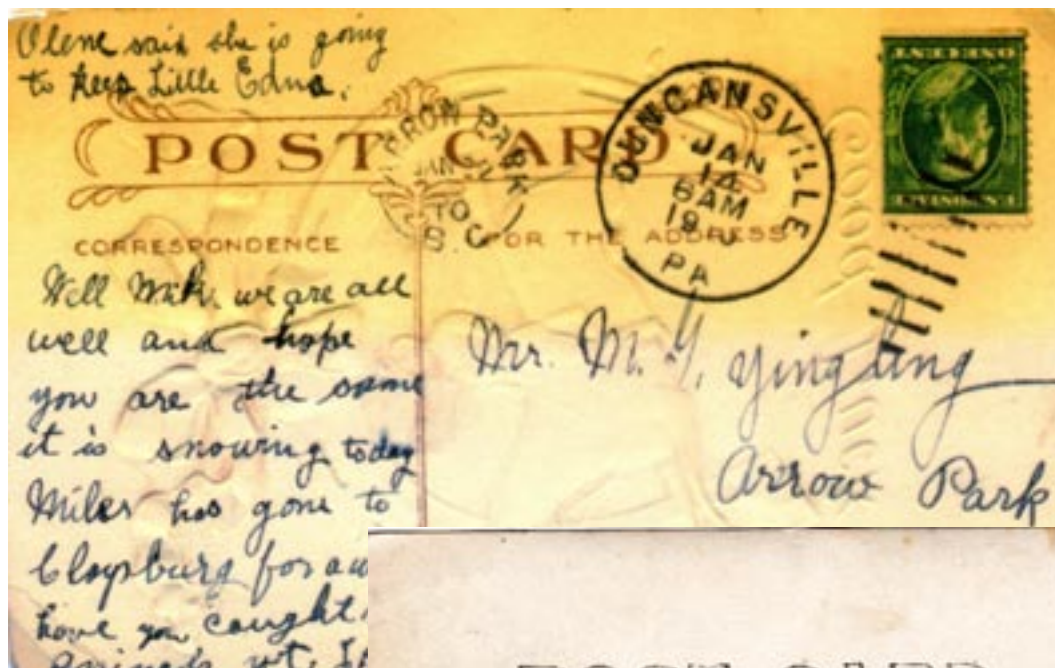 Olene said she is going
to keep Little Edna.
POST CARD
ARROW PARK
JAN
TO
B.C.
DUNCANSVILLE
JAN
14
6AM
PA
CORRESPONDENCE
FOR THE ADDRESS
Well Mike we are all
well and hope
you are the same
it is snowing today
Miles has gone to
Claysburg for a
have you caught
Mr. M. Y. Yingling
Arrow Park
POST CARD